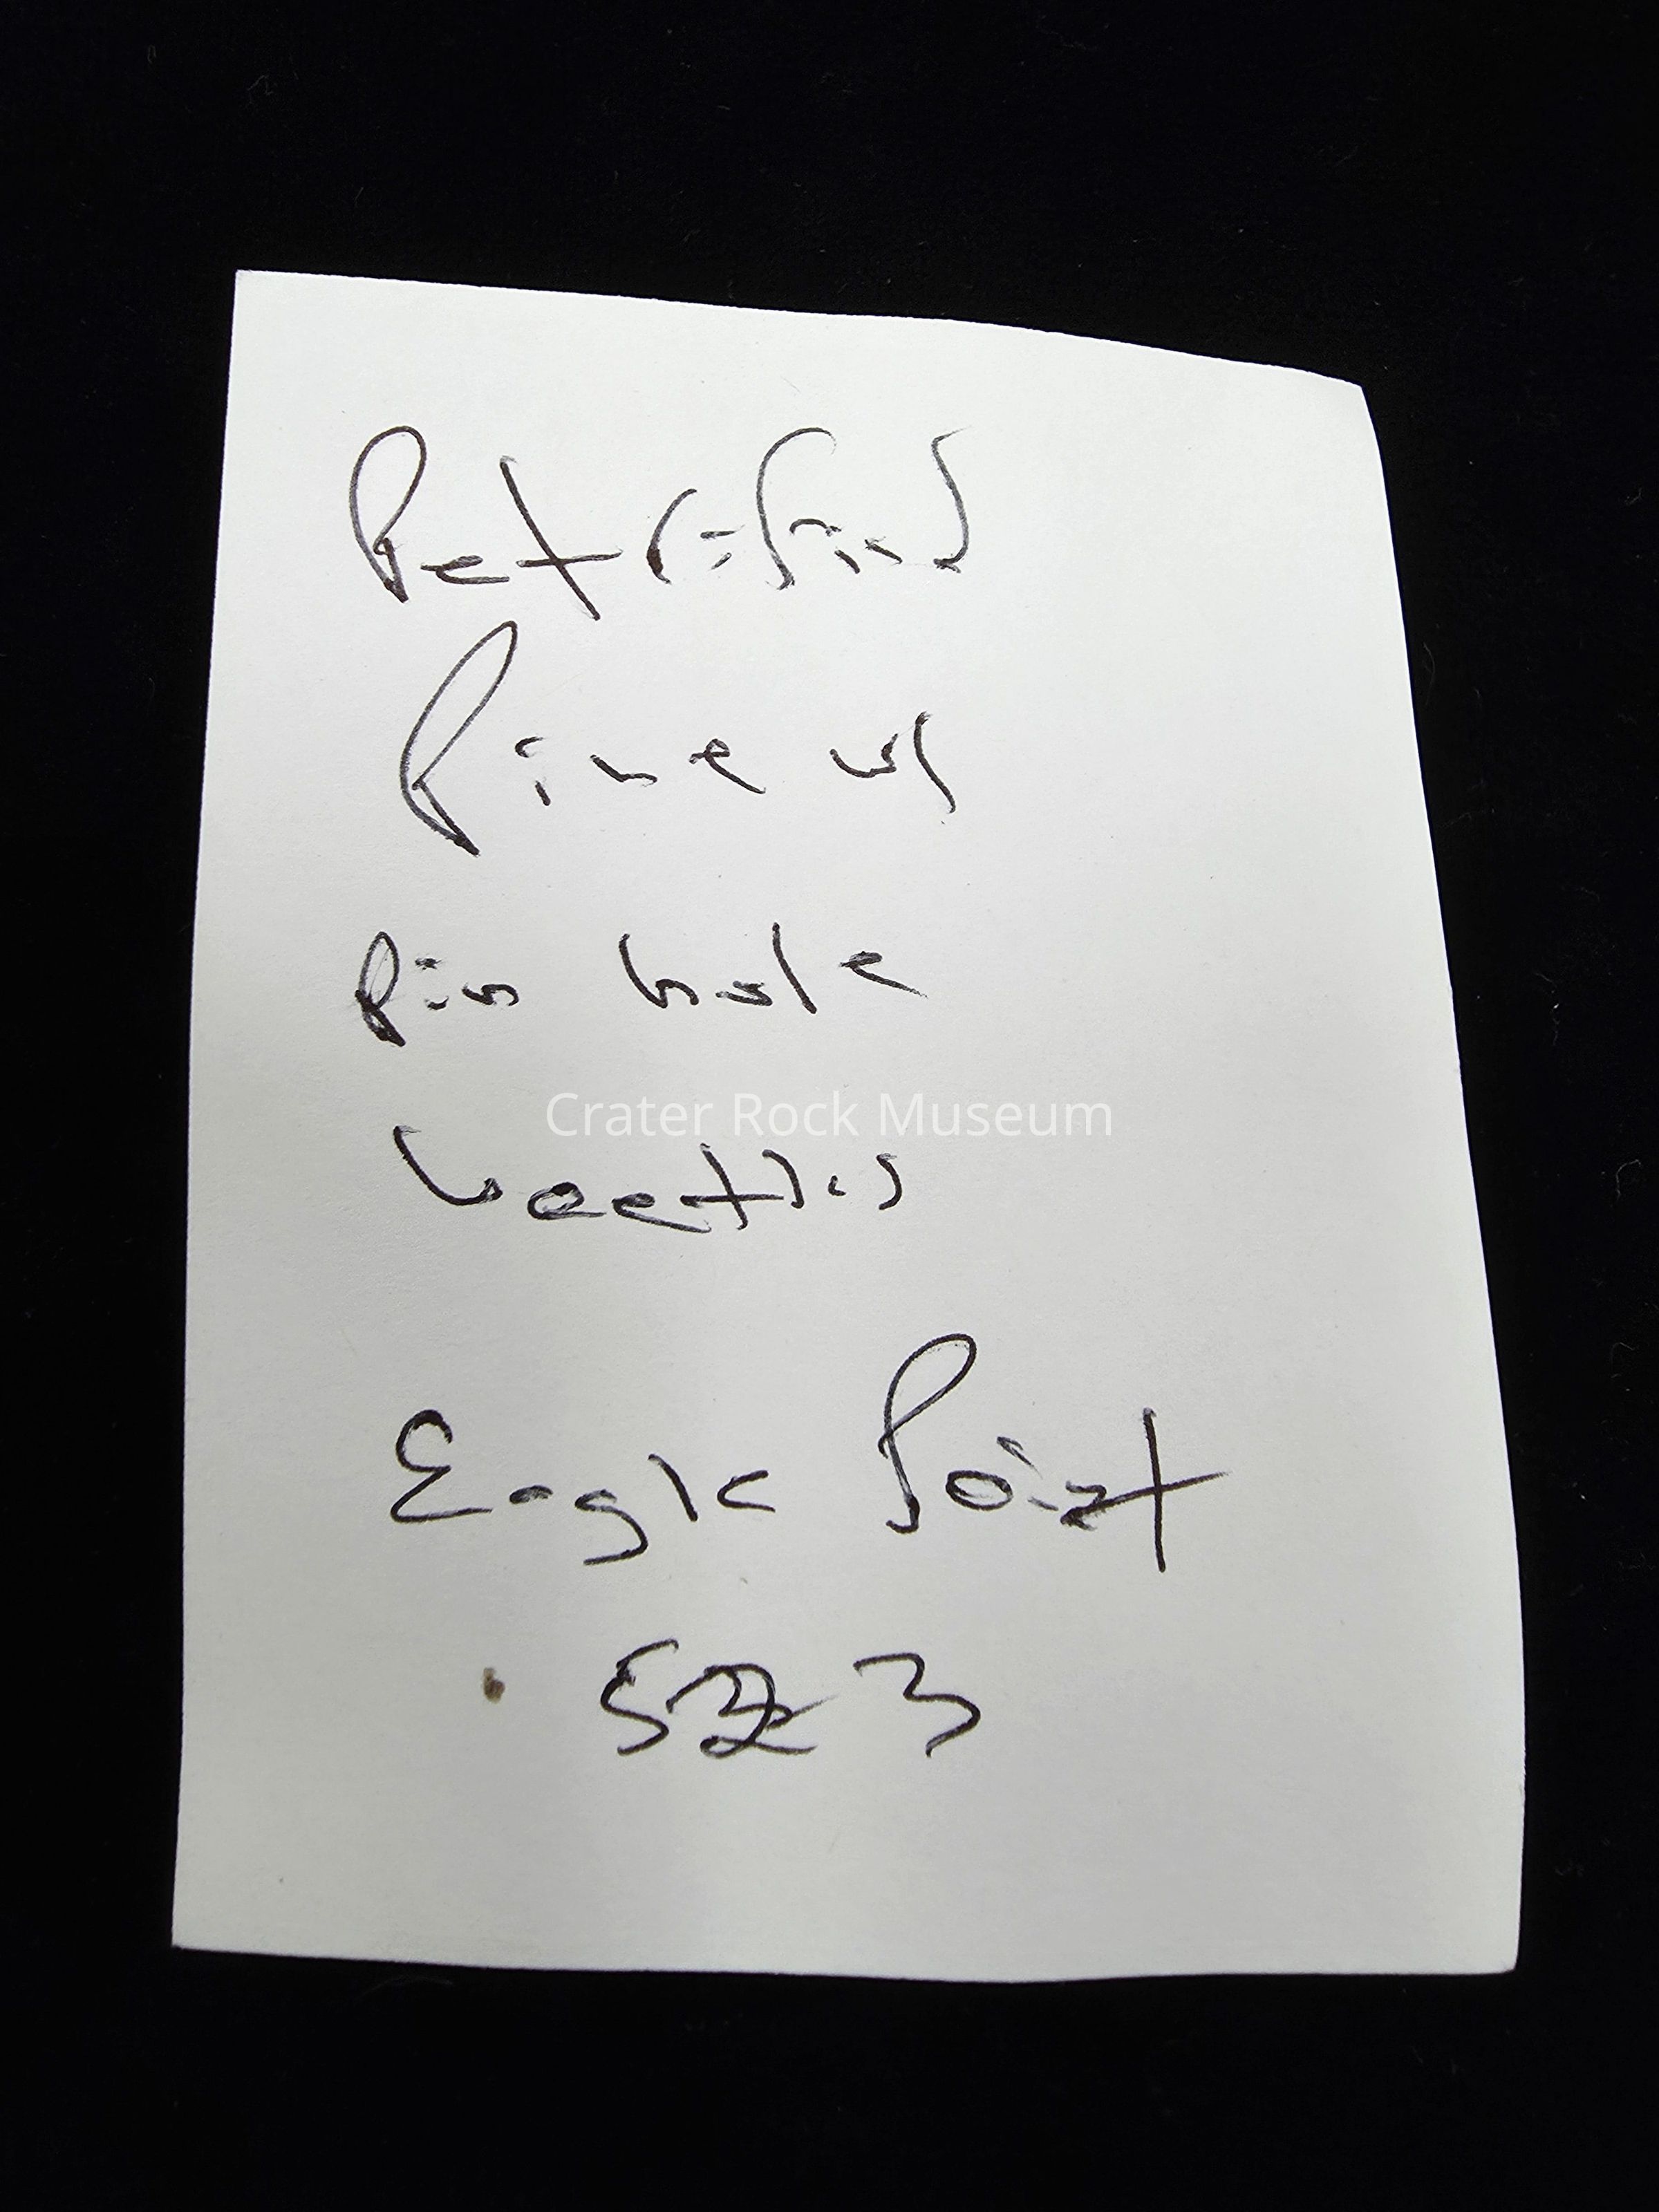 Petrified
Pine w/
pin hole
Crater Rock Museum
beetles
Eagle Point